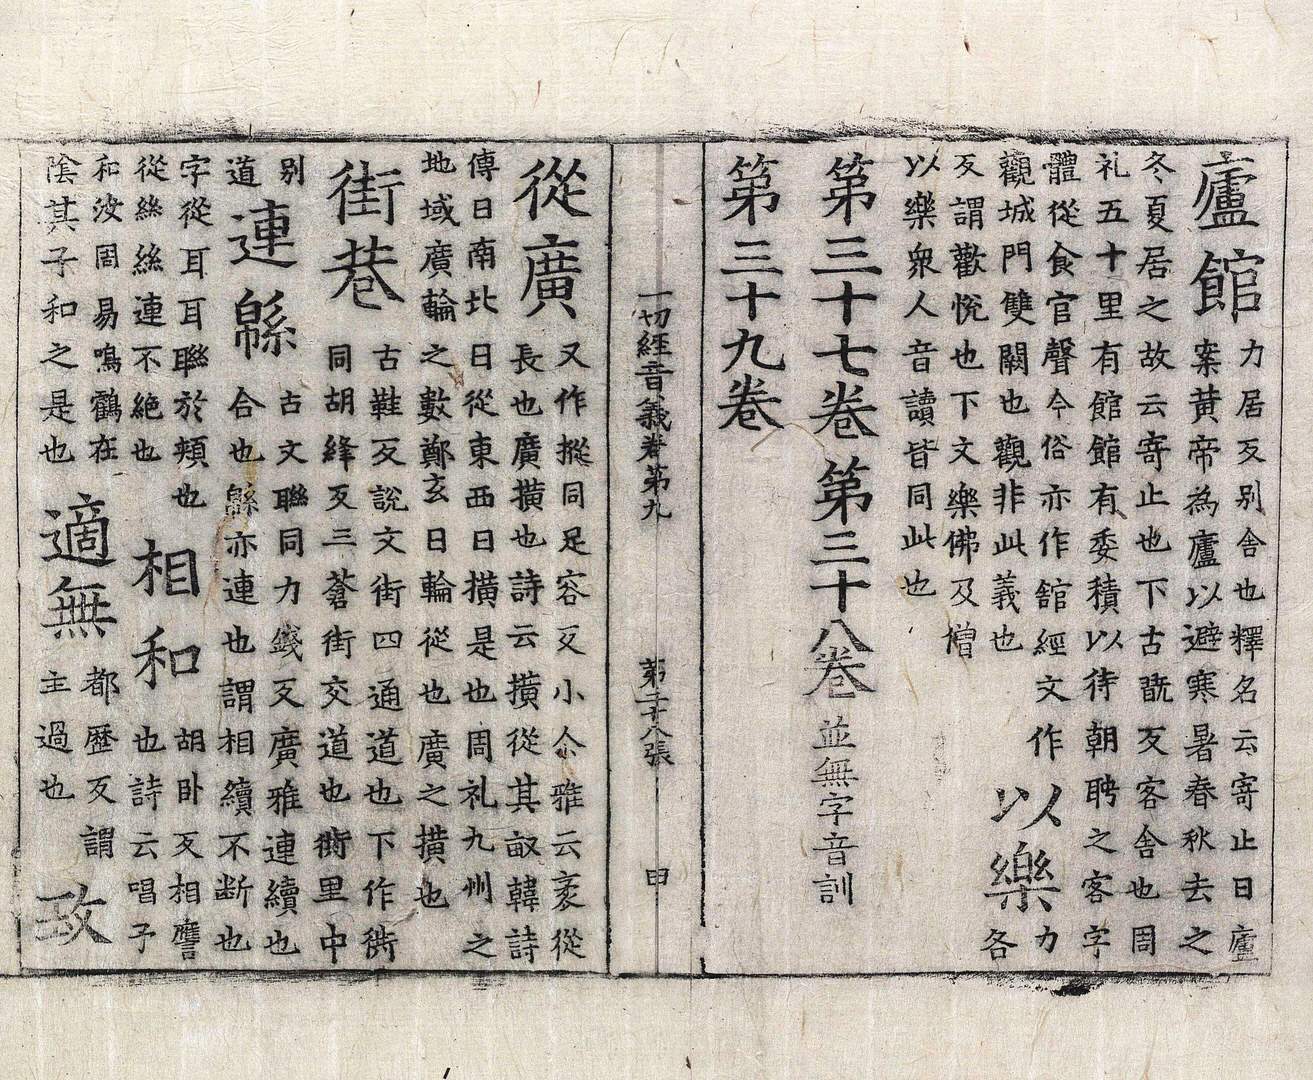 廬館
力居反别舍也釋名云寄止曰廬
案黄帝為廬以避寒暑春秋去之
冬夏居之故云寄止也下古翫反客舍也周
礼五十里有館館有委積以待朝聘之客字
體從食官聲今俗亦作舘經文作
觀城門雙闕也觀非此義也
以樂
力
各
反謂歡悅也下文樂佛及僧
以樂衆人音讀皆同此也
第三十七卷 第三十八卷 並無字音訓
第三十九卷
一切經音義卷第九 第二十八張 申
從廣
又作摐同足容反小尒雅云袤從
長也廣撗也詩云撗從其畝韓詩
傳曰南北曰從東西曰撗是也周礼九州之
地域廣輪之數鄭玄曰輪從也廣之撗也
街巷
古鞋反說文街四通道也下作衖
同胡絳反三蒼街交道也衖里中
别
道
連緜
古文聯同力錢反廣雅連續也
合也緜亦連也謂相續不断也
字從耳耳聯於頰也
從絲絲連不絶也
相和
胡卧反相譍
也詩云唱予
和汝周易鳴鶴在
陰其子和之是也
適無
都歷反謂
主過也
政